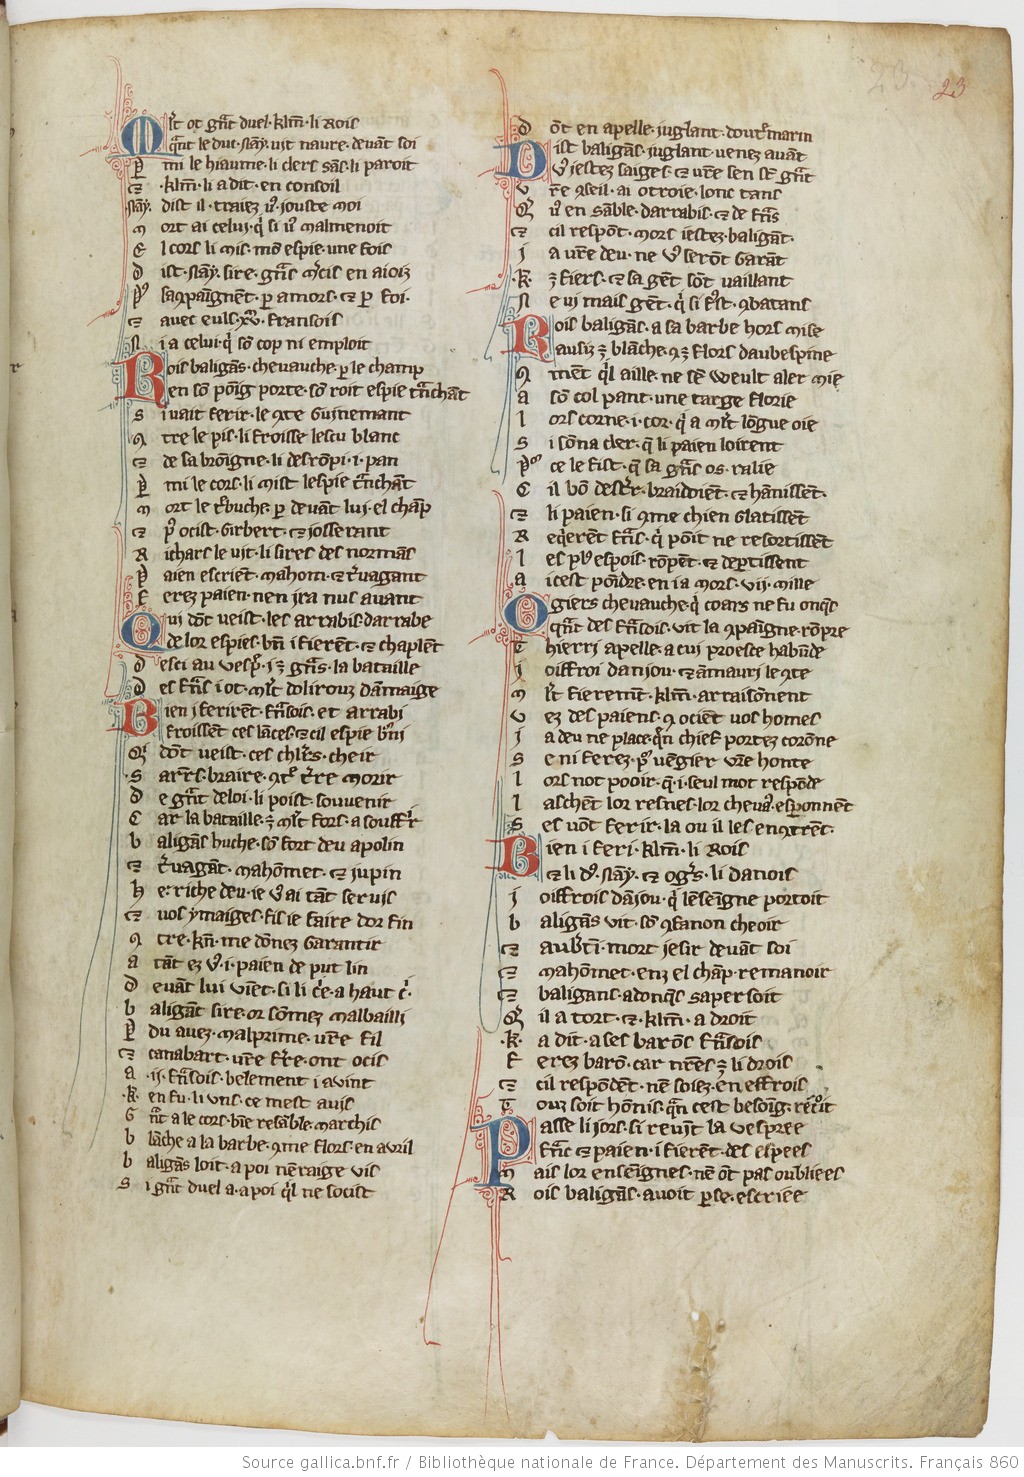 23
Mlt ot gnt duel .klm. li rois
Qnt le duc .nay. vit naure deuant soi
P mi le hiaume li clers sans li paroit
⁊ .klm. li a dit en consoil
.nay. dist il traiez uos iouste moi
M ort ai celui qi si uos malmenoit
E l cors li mis mon espie une fois
D ist .nay. sire grans mercis en aioiz
⁊ auec euls .xv. francois
N i a celui qi son cop ni emploit
Rois baligans cheuauche par le champ
En son poing porte son roit espie trenchant
S i uait ferir le 9te guinemant
9 tre le pis li froisse lescu blanc
⁊ de sa broigne li desronpi .i. pan
P mi le cors li mist lespie trenchant
M ort le trebuche par deuant lui el champ
⁊ pus ocist girbert ⁊ iosserant
R ichars le uit li sires des normans
P aien escrient mahom ⁊ teruagant
F erez paien nen ira nus auant
Qui dont ueist les arrabis darrabe
De lor espies bien i fierent ⁊ chaplent
D esci au uespre i est grans la bataille
D es frans i ot mlt dolirouz dammaige
Bien i ferirent francois et arrabi
Froissent ces lances ⁊ cil espie burni
Q i dont ueist ces chlrs cheir
S arrs braire 9tre terre morir
D e grant deloi li poist souuenir
C ar la bataille est mlt fors a souffrir
B aligans huche son fort deu apolin
⁊ teruagant mahommet ⁊ iupin
H e riche deu ie uos ai tant seruis
⁊ uos ymaiges fis ie faire dor fin
9 tre .kn. me donez garantir
A tant ez uos .i. paien de put lin
D euant lui uient si li crie a haut cri
B aligant sire or somez malbailli
P du auez malprime uostre fil
⁊ canabart uostre frere ont ocis
A .ii. francois belement i auint
.K. en fu li uns ce mest auis
G rant a le cors bien resamble marchis
B lanche a la barbe 9me flors en auril
B aligans loit a poi nenraige uis
S i grant duel a a poi qil ne socist
D ont en apelle iuglant doutremarin
Dist baligans iuglant uenez auant
Vos iestez saiges ⁊ uostre sen sont grant
V ostre 9seil ai otroie lonc tans
Q uos en samble darrabis ⁊ de frans
⁊ cil respont mors iestez baligant
I a uostre deu ne uos seront garant
.K. est fiers ⁊ sa gent sont uaillant
N e ui mais gent qi si fust 9batans
Rois baligans a sa barbe hors mise
Qausiz est blanche 9 est flors daubespine
9 ment qil aille ne sen weult aler mie
A son col pant une targe florie
L ors corne .i. cor qi a mlt longue oie
S i sonna cler que li paien loirent
P or ce le fist que sa grans os ralie
C il bon destrier braidoient ⁊ hanissent
⁊ li paien si 9me chien glatissent
R eqierent frans qi point ne resortissent
L es plus espois rompent ⁊ departissent
A icest poindre en i a mors .vij. mille
Ogiers cheuauche qi coars ne fu onqs
Qant des francois uit la 9paigne rompre
T hierri apelle a cui proesce habunde
I oiffroi daniou ⁊ amauri le 9te
M lt fierement .klm. arraisonnent
V ez des paiens 9 ocient uos homes
I a deu ne place qen chief portez coronne
S e ni ferez por uengier uostre honte
L ors not pooir que .i. seul mot responde
L aschent lor resnes lor cheuax esporonnent
S es uont ferir la ou il les en9trent
Bien i feri .klm. li rois
⁊ li dus .nay. ⁊ ogiers li danois
I oiffrois daniou qi lenseigne portoit
B aligans uit son 9fanon cheoir
⁊ aubertin mort iesir deuant soi
⁊ mahommet enz el champ remanoir
⁊ baligans adonqs sapersoit
Q il a tort ⁊ .klm. a droit
.K. a dit a ses barons francois
F erez baron car nostres est li drois
⁊ cil respondent nen soiez en effrois
T ouz soit honnis qen cest besoing recroit
Passe li iors si reuint la uespree
Franc ⁊ paien i fierent des espees
M ais lor enseignes nen ont pas oubliees
R ois baligans auoit perse escriee
Source gallica.bnf.fr / Bibliothèque nationale de France. Département des Manuscrits. Français 860